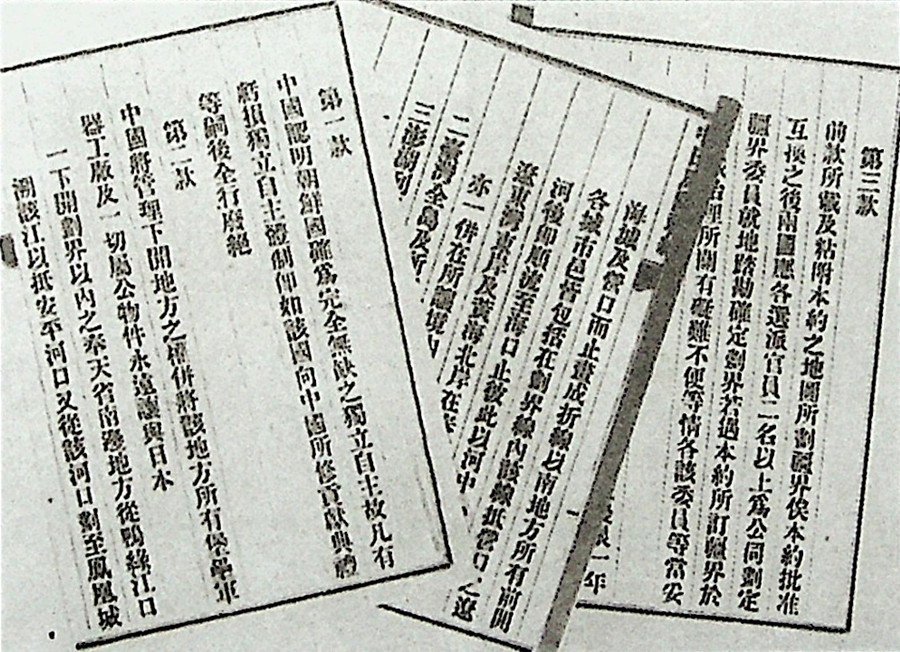 第一款
中國認明朝鮮國確爲完全無缺之獨立自主故凡有
虧損獨立自主體制卽如該國向中國所修貢獻典禮
等嗣後全行廢絕
第二款
中國將管理下開地方之權併將該地方所有堡壘軍
器工廠及一切屬公物件永遠讓與日本
一下開劃界以內之奉天省南邊地方從鴨綠江口
溯該江以抵安平河口又從該河口劃至鳳凰城
海城及營口而止畫成折線以南地方所有前開
各城市邑皆包括在劃界線內該線抵營口之遼
河後卽順流至海口止彼此以河中
遼東灣東岸及黃海北岸在奉
亦一併在所讓境內
二臺灣全島及所
三澎湖列
第三款
前款所載及粘附本約之地圖所劃疆界俟本約批准
互換之後兩國應各選派官員二名以上爲公同劃定
疆界委員就地踏勘確定劃界若遇本約所訂疆界於
治理所關有礙難不便等情各該委員等當妥
限一年